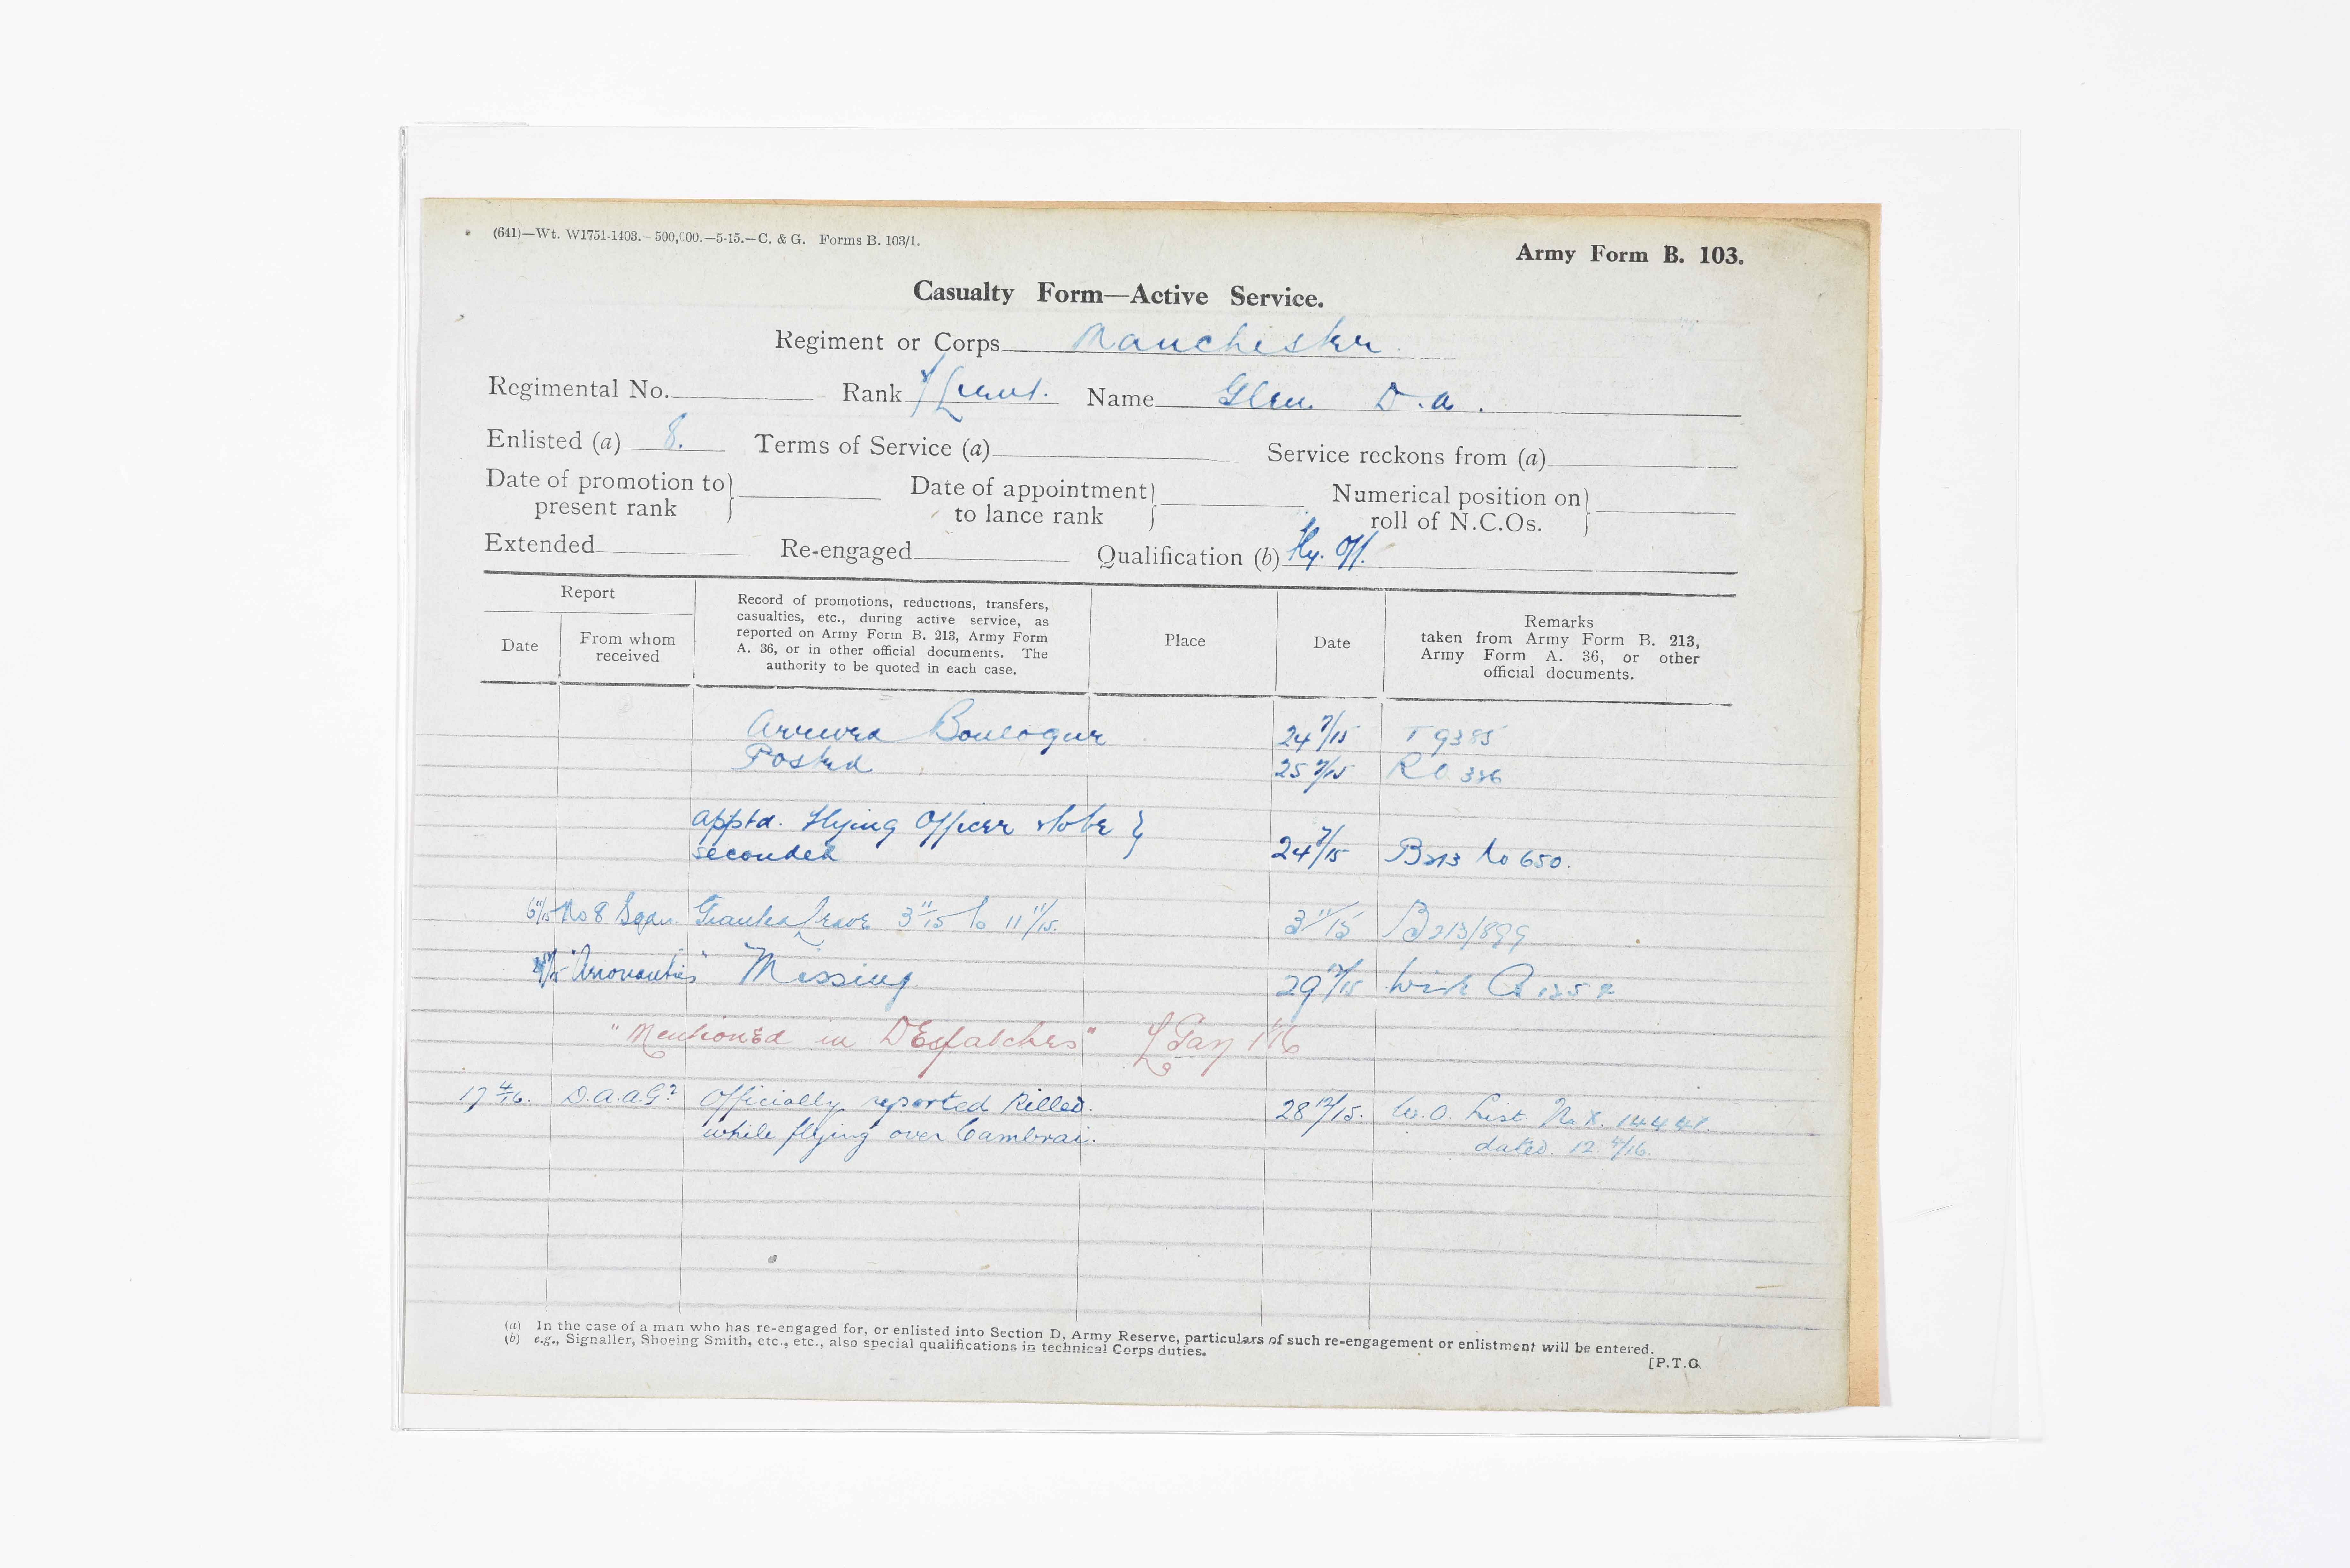 (641)—Wt. W1751-1403.—500,000.—5-15.—C. & G. Forms B. 103/1.
Army Form B. 103.
Casualty Form—Active Service.
Regiment or Corps Manchester
Regimental No. Rank T/Lieut. Name Glen D.A.
Enlisted (a) 8. Terms of Service (a) Service reckons from (a)
Date of promotion to present rank } Date of appointment to lance rank } Numerical position on roll of N.C.Os. }
Extended Re-engaged Qualification (b) Fly. Off.
Report
Date
From whom received
Record of promotions, reductions, transfers, casualties, etc., during active service, as reported on Army Form B. 213, Army Form A. 36, or in other official documents. The authority to be quoted in each case.
Place
Date
Remarks taken from Army Form B. 213, Army Form A. 36, or other official documents.
Arrived Boulogne 24 7/15 T 9385
Posted 25 7/15 RO 386
apptd. Flying Officer & to be }
seconded 24 7/15 B213 No 650.
6 11/15 No 8 Sqdn. Granted leave 3 11/15 to 11 11/15. 3 11/15 B213/899
"Aeronautics" Missing 29 12/15 Wire
"Mentioned in DEspatches" L Gaz 1 1/16
17 4/16. D.A.A.G. Officially reported Killed. 28 12/15. W.O. List. No X. 14441.
while flying over Cambrai. dated. 12 4/16.
(a) In the case of a man who has re-engaged for, or enlisted into Section D, Army Reserve, particulars of such re-engagement or enlistment will be entered.
(b) e.g., Signaller, Shoeing Smith, etc., etc., also special qualifications in technical Corps duties.
[P.T.O